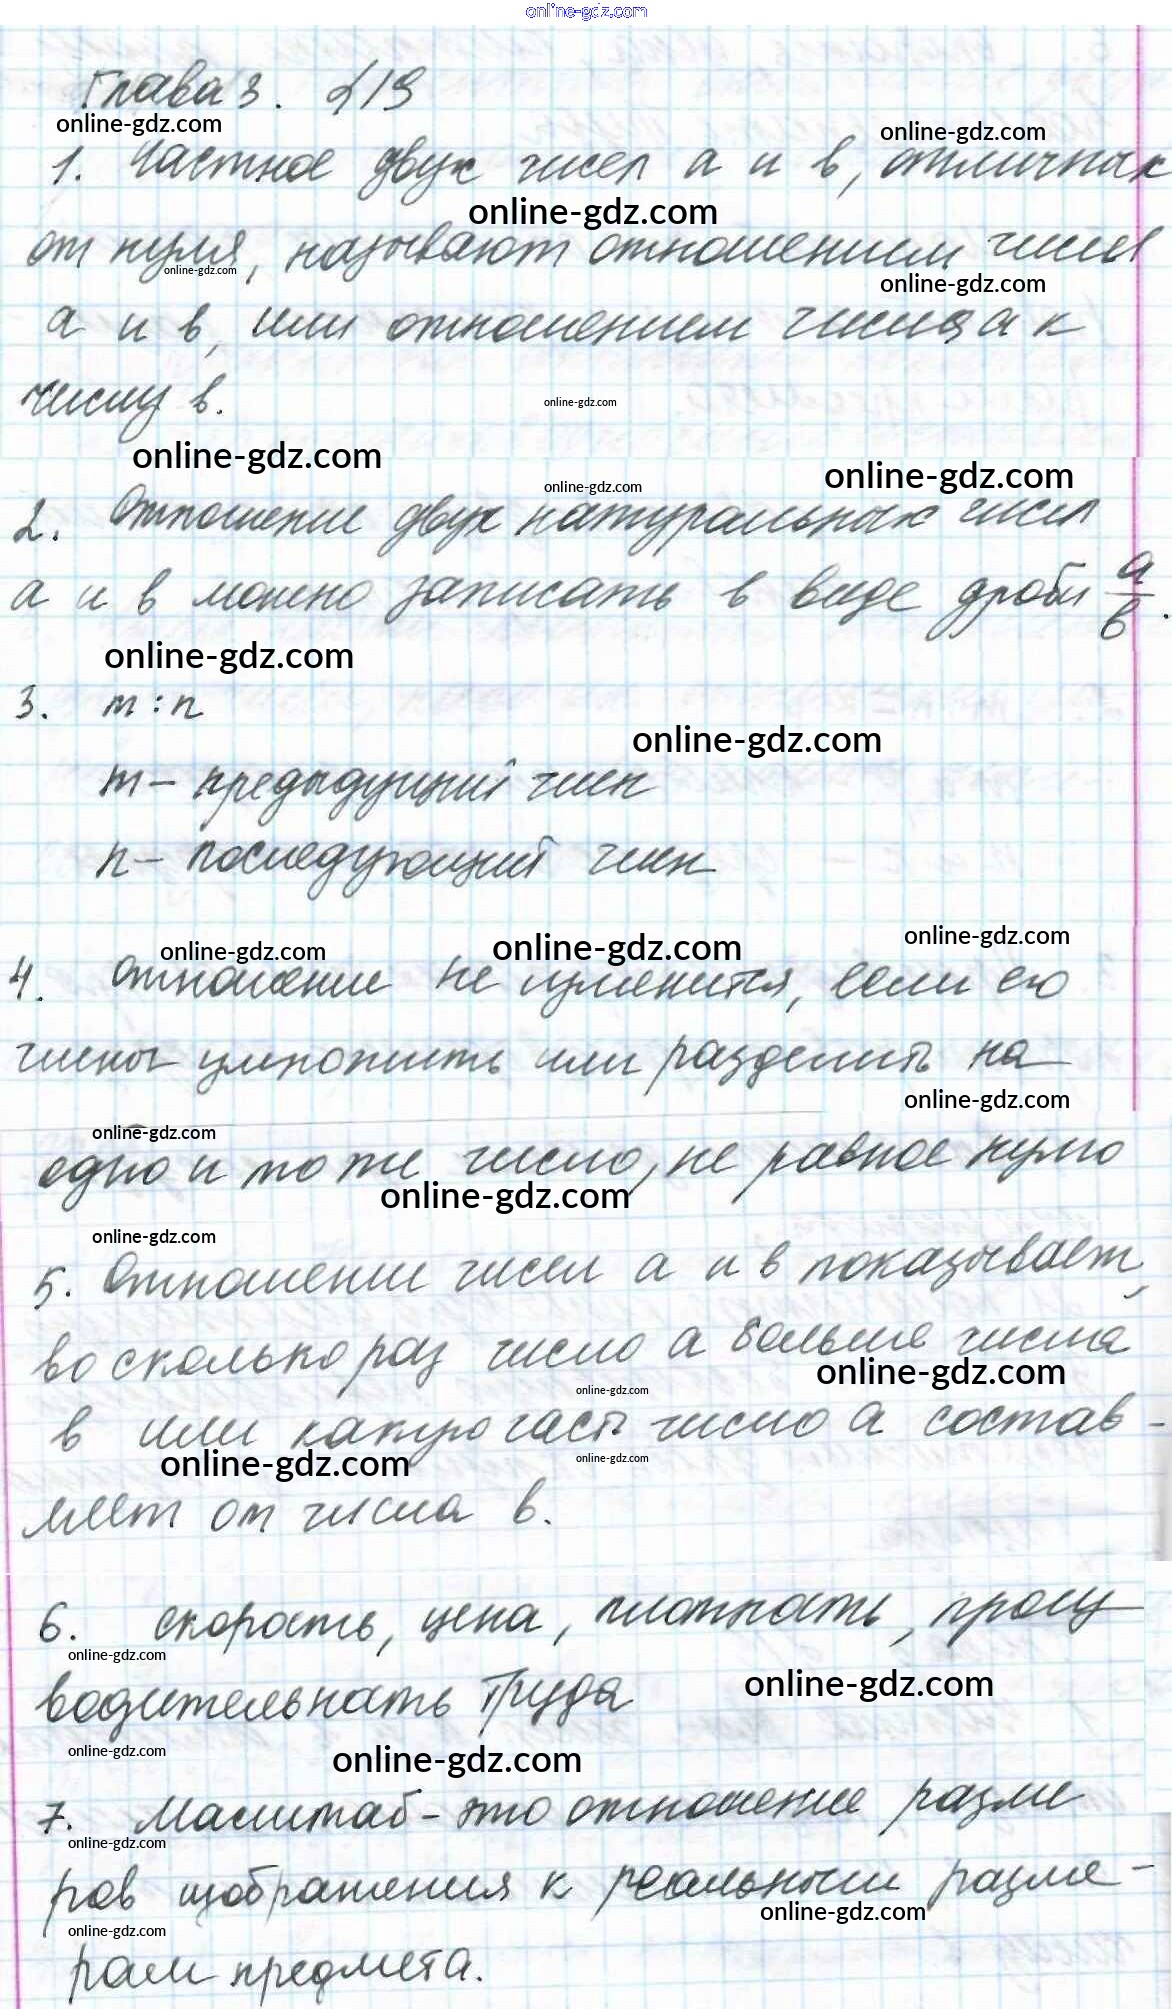 online-gdz.com
Глава 3. §19
online-gdz.com
online-gdz.com
1. Частное двух чисел а и в, отличных
online-gdz.com
от нуля, называют отношением чисел
online-gdz.com
online-gdz.com
а и в, или отношением числа а к
числу в.
online-gdz.com
online-gdz.com
online-gdz.com
online-gdz.com
2. Отношение двух натуральных чисел
а и в можно записать в виде дроби а/в.
online-gdz.com
3. m : n
online-gdz.com
m – предыдущий член
n – последующий член
online-gdz.com
online-gdz.com
online-gdz.com
4. Отношение не изменится, если его
члены умножить или разделить на
online-gdz.com
online-gdz.com
одно и то же число, не равное нулю
online-gdz.com
online-gdz.com
5. Отношение чисел а и в показывает,
во сколько раз число а больше числа
online-gdz.com
online-gdz.com
в или какую часть число а состав-
online-gdz.com
online-gdz.com
ляет от числа в.
6. скорость, цена, плотность, произ
online-gdz.com
водительность труда
online-gdz.com
online-gdz.com
online-gdz.com
7. Масштаб – это отношение разме
online-gdz.com
ров изображения к реальным разме-
online-gdz.com
online-gdz.com
рам предмета.